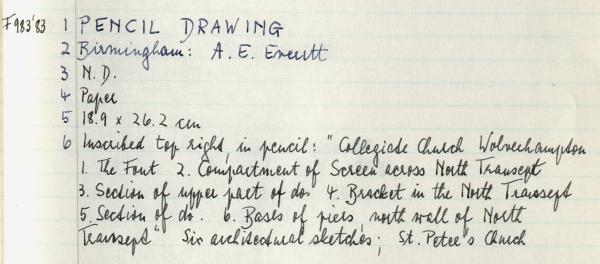 F983'83 1 PENCIL DRAWING
2 Birmingham: A. E. Everitt
3 N.D.
4 Paper
5 18.9 x 26.2 cm
6 Inscribed top right, in pencil: "Collegiate Church Wolverhampton
1. The Font 2. Compartment of Screen across North Transept
3. Section of upper part of do. 4. Bracket in the North Transept
5. Section of do. 6. Bases of piers, north wall of North
Transept" Six architectural sketches; St. Peter's Church